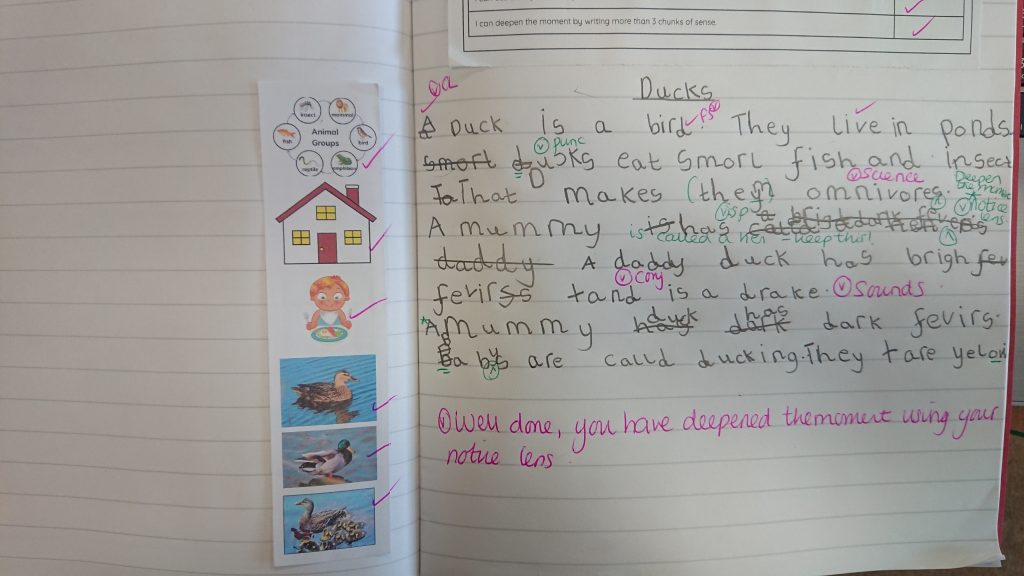 I can deepen the moment by writing more than 3 chunks of sense.
insect
mammal
fish
Animal Groups
bird
reptile
amphibian
Ducks
A Duck is a bird. They live in ponds
fs
punc
smorl ducks eat smorl fish and insect
D
science
Deepen the moment
That makes (them) omnivores.
notice lens
sp
A mummy is has
is called a hen = keep this!
daddy A daddy duck has brigh fev
Cong
fevirss tand is a drake. Sounds
duck has
A mummy has dark dark fevirs.
Babys are calld ducking. They tare yelow
Well done, you have deepened the moment using your
notice lens.